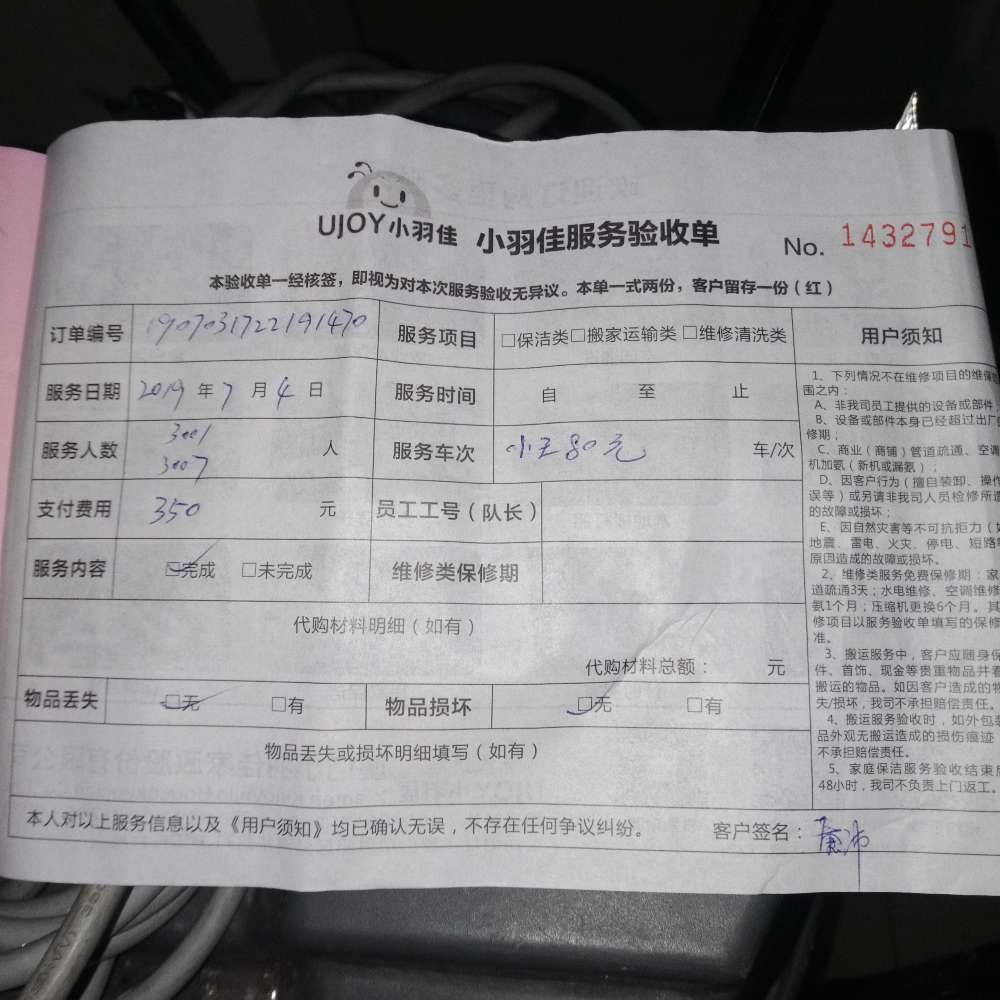 UJOY小羽佳 小羽佳服务验收单 No. 1432791
本验收单一经核签，即视为对本次服务验收无异议。本单一式两份，客户留存一份（红）
订单编号 1907031722191470 服务项目 □保洁类□搬家运输类 □维修清洗类
服务日期 2019 年 7 月 4 日 服务时间 自 至 止
服务人数 3001 3007 人 服务车次 小王80元 车/次
支付费用 350 元 员工工号（队长）
服务内容 □完成 □未完成 维修类保修期
代购材料明细（如有）
代购材料总额： 元
物品丢失 □无 □有 物品损坏 □无 □有
物品丢失或损坏明细填写（如有）
本人对以上服务信息以及《用户须知》均已确认无误，不存在任何争议纠纷。 客户签名：
用户须知
1、下列情况不在维修项目的维保
围之内：
A、非我司员工提供的设备或部件
B、设备或部件本身已经超过出厂
修期；
C、商业（商铺）管道疏通、空调
机加氨（新机或漏氨）；
D、因客户行为（擅自装卸、操作
误等）或另请非我司人员检修所造
的故障或损坏；
E、因自然灾害等不可抗拒力（如
地震、雷电、火灾、停电、短路等
原因造成的故障或损坏。
2、维修类服务免费保修期：家
道疏通3天；水电维修、空调维修
氨1个月；压缩机更换6个月。其
修项目以服务验收单填写的保修
准。
3、搬运服务中，客户应随身保
件、首饰、现金等贵重物品并看
搬运的物品。如因客户造成的物
失/损坏，我司不承担赔偿责任。
4、搬运服务验收时，如外包装
品外观无搬运造成的损伤痕迹
不承担赔偿责任。
5、家庭保洁服务验收结束后
48小时，我司不负责上门返工。